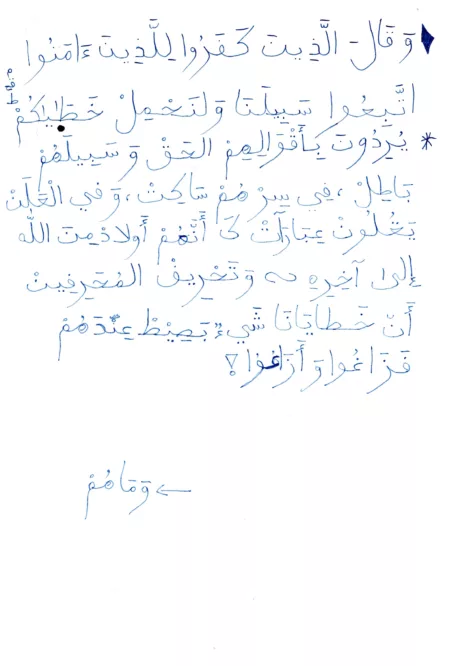 وَقَالَ الَّذِينَ كَفَرُوا لِلَّذِينَ ءَامَنُوا
اتَّبِعُوا سَبِيلَنَا وَلْنَحْمِلْ خَطَٰيَٰكُمْ
* يُرِدُونَ بِأَقْوَالِهِمْ الحَقْ وَسَبِيلَهُمْ
بَاطِلْ، فِي سِرْهُمْ سَاكِتْ، وَفِي الْعَلَنْ
عِبَارَاتْ كَ أَنَّهُمْ أَولَادْ مِنَ اللّٰه
إِلَىٰ آخِرِهِ وَتَحْرِيفْ المُحَرِفِينْ
أَنّ خَطَايَانَا شَيءْ بَصِيطْ عِنْدَهُمْ
فَزَاغُوا وَأَزَاغُوا؟
← وَمَا هُمْ